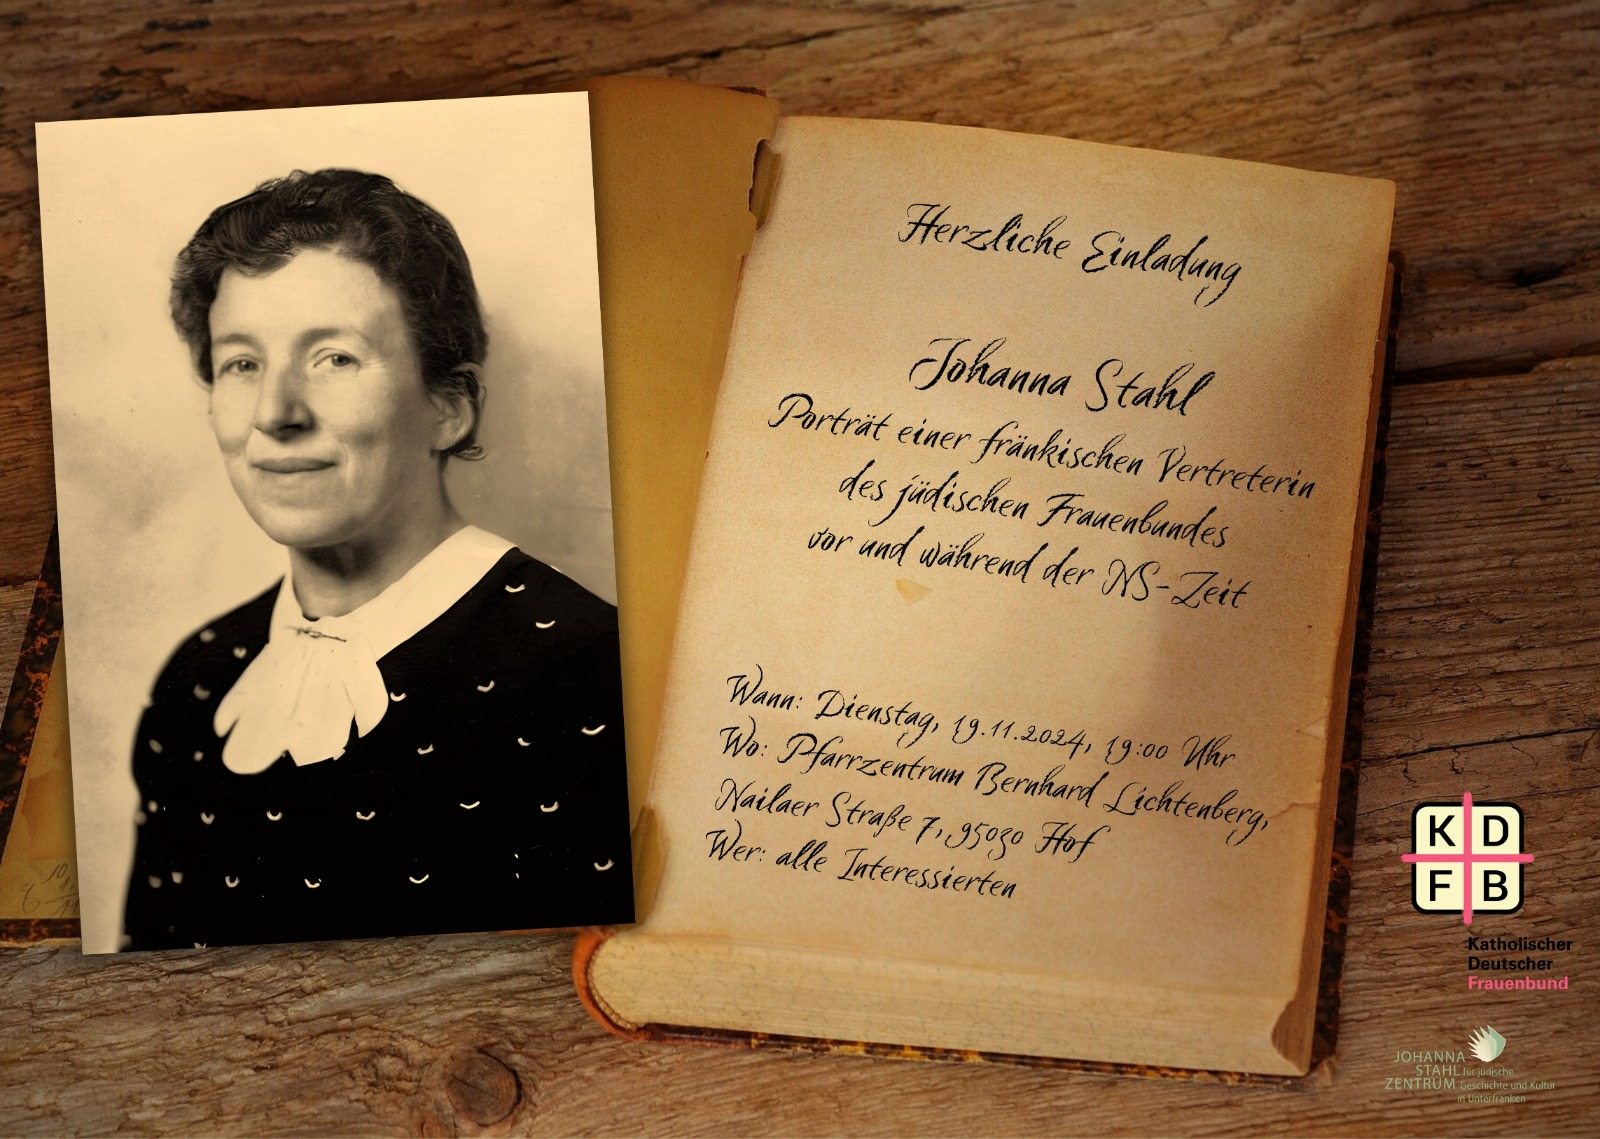 Herzliche Einladung
Johanna Stahl
Porträt einer fränkischen Vertreterin
des jüdischen Frauenbundes
vor und während der NS-Zeit
Wann: Dienstag, 19.11.2024, 19:00 Uhr
Wo: Pfarrzentrum Bernhard Lichtenberg,
Nailaer Straße 7, 95030 Hof
Wer: alle Interessierten
K D
F B
Katholischer
Deutscher
Frauenbund
JOHANNA
STAHL für jüdische
ZENTRUM Geschichte und Kultur
in Unterfranken